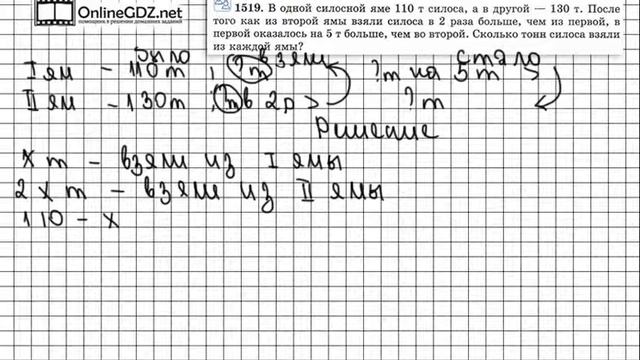 OnlineGDZ.net
помощник в решении домашних заданий
1519. В одной силосной яме 110 т силоса, а в другой — 130 т. После
того как из второй ямы взяли силоса в 2 раза больше, чем из первой, в
первой оказалось на 5 т больше, чем во второй. Сколько тонн силоса взяли
из каждой ямы?
было взяли стало
I ям – 110 т ; ? т ? т на 5 т >
II ям – 130 т ; т в 2 р > ? т
Решение
х т – взяли из I ямы
2 х т – взяли из II ямы
110 – х